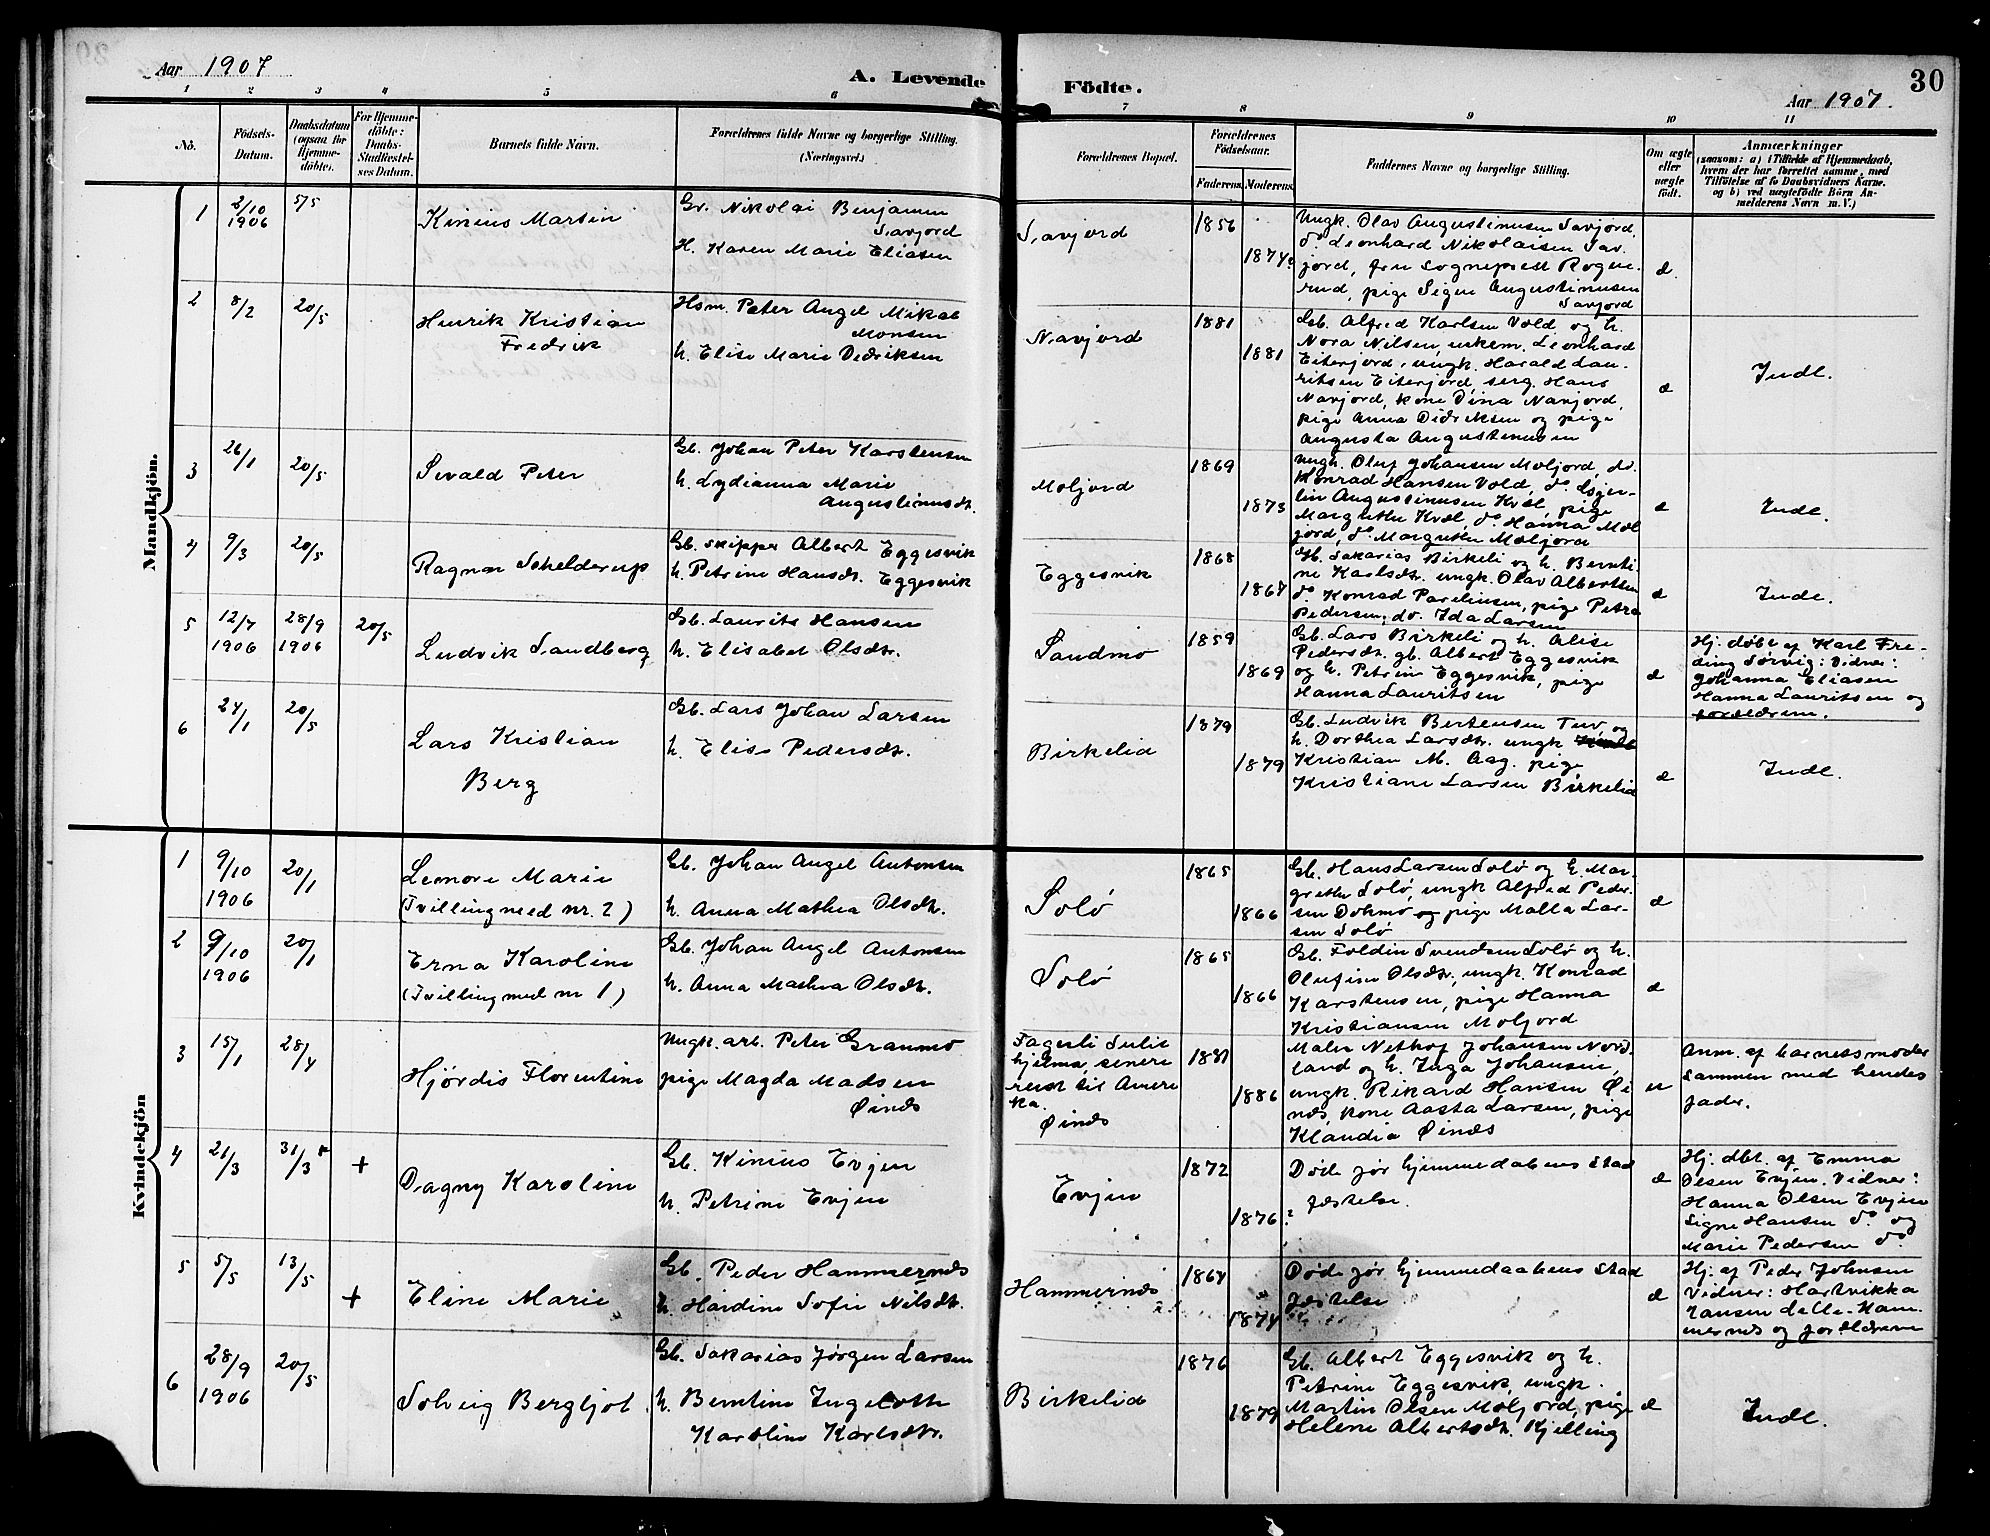 Aar 1907
A. Levende Födte.
Aar 1907.
30
1 2 3 4 5 6 7 8 9 10 11
No.
Födsels-
Datum.
Daabsdatum
(ogsaa for
Hjemme-
döbte).
For Hjemme-
döbte:
Daabs-
Stadfæstel-
ses Datum.
Barnets fulde Navn.
Forældrenes fulde Navne og borgerlige Stilling.
(Næringsvei.)
Forældrenes Bopæl.
Forældrenes
Födselsaar.
Faderens. Moderens.
Faddernes Navne og borgerlige Stilling.
Om ægte
eller
uægte
födt.
Anmærkninger
(saasom: a) i Tilfælde af Hjemmedaab,
hvem der har forrettet samme, med
Tilföielse af to Daabsvidners Navne,
og b) ved uægtefödte Börn An-
melderens Navn m. V.)
Mandkjön.
1
2/10
1906
5/5
Kinius Martin
Gr. Nikolai Benjamin
Savjord
H. Karen Marie Eliasen
Savjord
1856
1874?
Ungk. Olav Augustinusen Savjord,
do Leonhard Nikolaisen Sav-
jord, fru sogneprest Rogne-
rud, pige Signe Augustinusen
Savjord
æ.
2
8/2
20/5
Henrik Kristian
Fredrik
Hsm. Peter Angel Mikal
Monsen
h. Elise Marie Dedriksen
Navjord
1881
1881
Gb. Alfred Karlsen Vold og h.
Nora Nilsen, enkem. Leonhard
Eiterjord, ungk. Harald Lau-
ritsen Eiterjord, serg. Hans
Navjord, kone Dina Navjord,
pige Anna Didriksen og pige
Augusta Augustinusen
æ
Indl.
3
26/1
20/5
Sevald Peter
Gb. Johan Peter Karstensen
h. Lydianna Marie
Augustinusdt.
Moljord
1869
1873
Ungk. Oluf Johansen Moljord, do.
Konrad Hansen Vold, do
Augustinusen Kvæl, pige
Margrethe Kvæl, do Hanna Mol
jord, do Margrethe Moljord
æ
Indl.
4
9/3
20/5
Ragnar Schelderup
Gb. skipper Albert Eggesvik
h. Petrine Hansdt. Eggesvik
Eggesvik
1868
1867
Gb. Sakarias Birkeli og h. Bernti-
ne Karlsdt. ungk. Olav Albertsen
do Konrad Parelinsen, pige Petra
Pedersen, do. Ida Larsen
æ
Indl.
5
12/7
1906
28/9
1906
20/5
Ludvik Sandberg
Gb. Laurits Hansen
h. Elisabet Olsdt.
Sandmo
1859
1869
Gb. Lars Birkeli og h. Alise
Pedersdt. gb. Albert Eggesvik
og h. Petrine Eggesvik, pige
Hanna Lauritsen
æ
Hj. døbt af Karl Fre-
ding Sørvig: Vidner:
Johanna Eliasen
Hanna Lauritsen og
forældrene.
6
24/1
20/5
Lars Kristian
Berg
Gb. Lars Johan Larsen
h. Elise Pedersdt.
Birkelid
1879
1879
Gb. Ludvik Bertensen Tuv, og
h. Dorthea Larsdt. ungk
Kristian M. Aag. pige
Kristiane Larsen Birkelid
æ
Indl.
Kvindekjön
1
9/10
1906
20/1
Lemore Marie
(Tvilling med nr. 2)
Gb. Johan Angel Antonsen
h. Anna Mathea Olsdt.
Solø
1865
1866
Gb. Hans Larsen Solø og h. Mar-
grethe Solø, ungk Alfred Peder-
sen Dohmo og pige Malla Lar-
sen Solø
æ
2
9/10
1906
20/1
Erna Karoline
(Tvilling med nr 1)
Gb. Johan Angel Antonsen
h. Anna Mathea Olsdt.
Solø
1865
1866
Gb. Foldin Svendsen Solø og h.
Olufine Olsdt., ungk. Konrad
Karstensen, pige Hanna
Kristiansen Moljord
æ
3
15/1
28/4
Hjørdis Florentine
Ungk. arb. Peter Granmo
pige Magda Madsen
Øinæs
Fagerli Sulit-
hjelma, senere
reist til Amere
ka.
Øinæs
1881
1886
Maler Nethof Johansen Nord
land og h. Inga Johansen,
ungk. Rikard Hansen Øi
næs, kone Aasta Larsen, pige
Klaudia Øinæs
u
Anm. af barnets moder
sammen med hendes
fader.
4
21/3
31/3
+
Dagny Karoline
Gb. Kinius Evjen
h. Petrine Evjen
Evjen
1872
1876?
Døde før hjemmedabens stad
fæstelse.
æ
Hj. dbt. af Emma
Olsen Evjen. Vidner:
Hanna Olsen Evjen
Signe Hansen do og
Marie Pedersen do
5
5/5
13/5
+
Eline Marie
Gb. Peder Hammernæs
h. Hardine Sofie Nilsdt.
Hammernæs
1864
1874
Døde før hjemmedaabens stad
fæstelse
æ
Hj. af Peder Johnsen
Vidner: Hartvikka
Jansen Ham-
mernæs og forældrene
6
28/9
1906
20/5
Solveig Bergljot
Gb. Sakarias Jørgen Larsen
h. Berntine Ingelotte
Karoline Karlsdt.
Birkelid
1876
1879
Gb. Albert Eggesvik og h.
Petrine Eggesvik, ungk.
Martin Olsen Moljord, pige
Helene Albertsdt. Kjelling
æ
Indl.